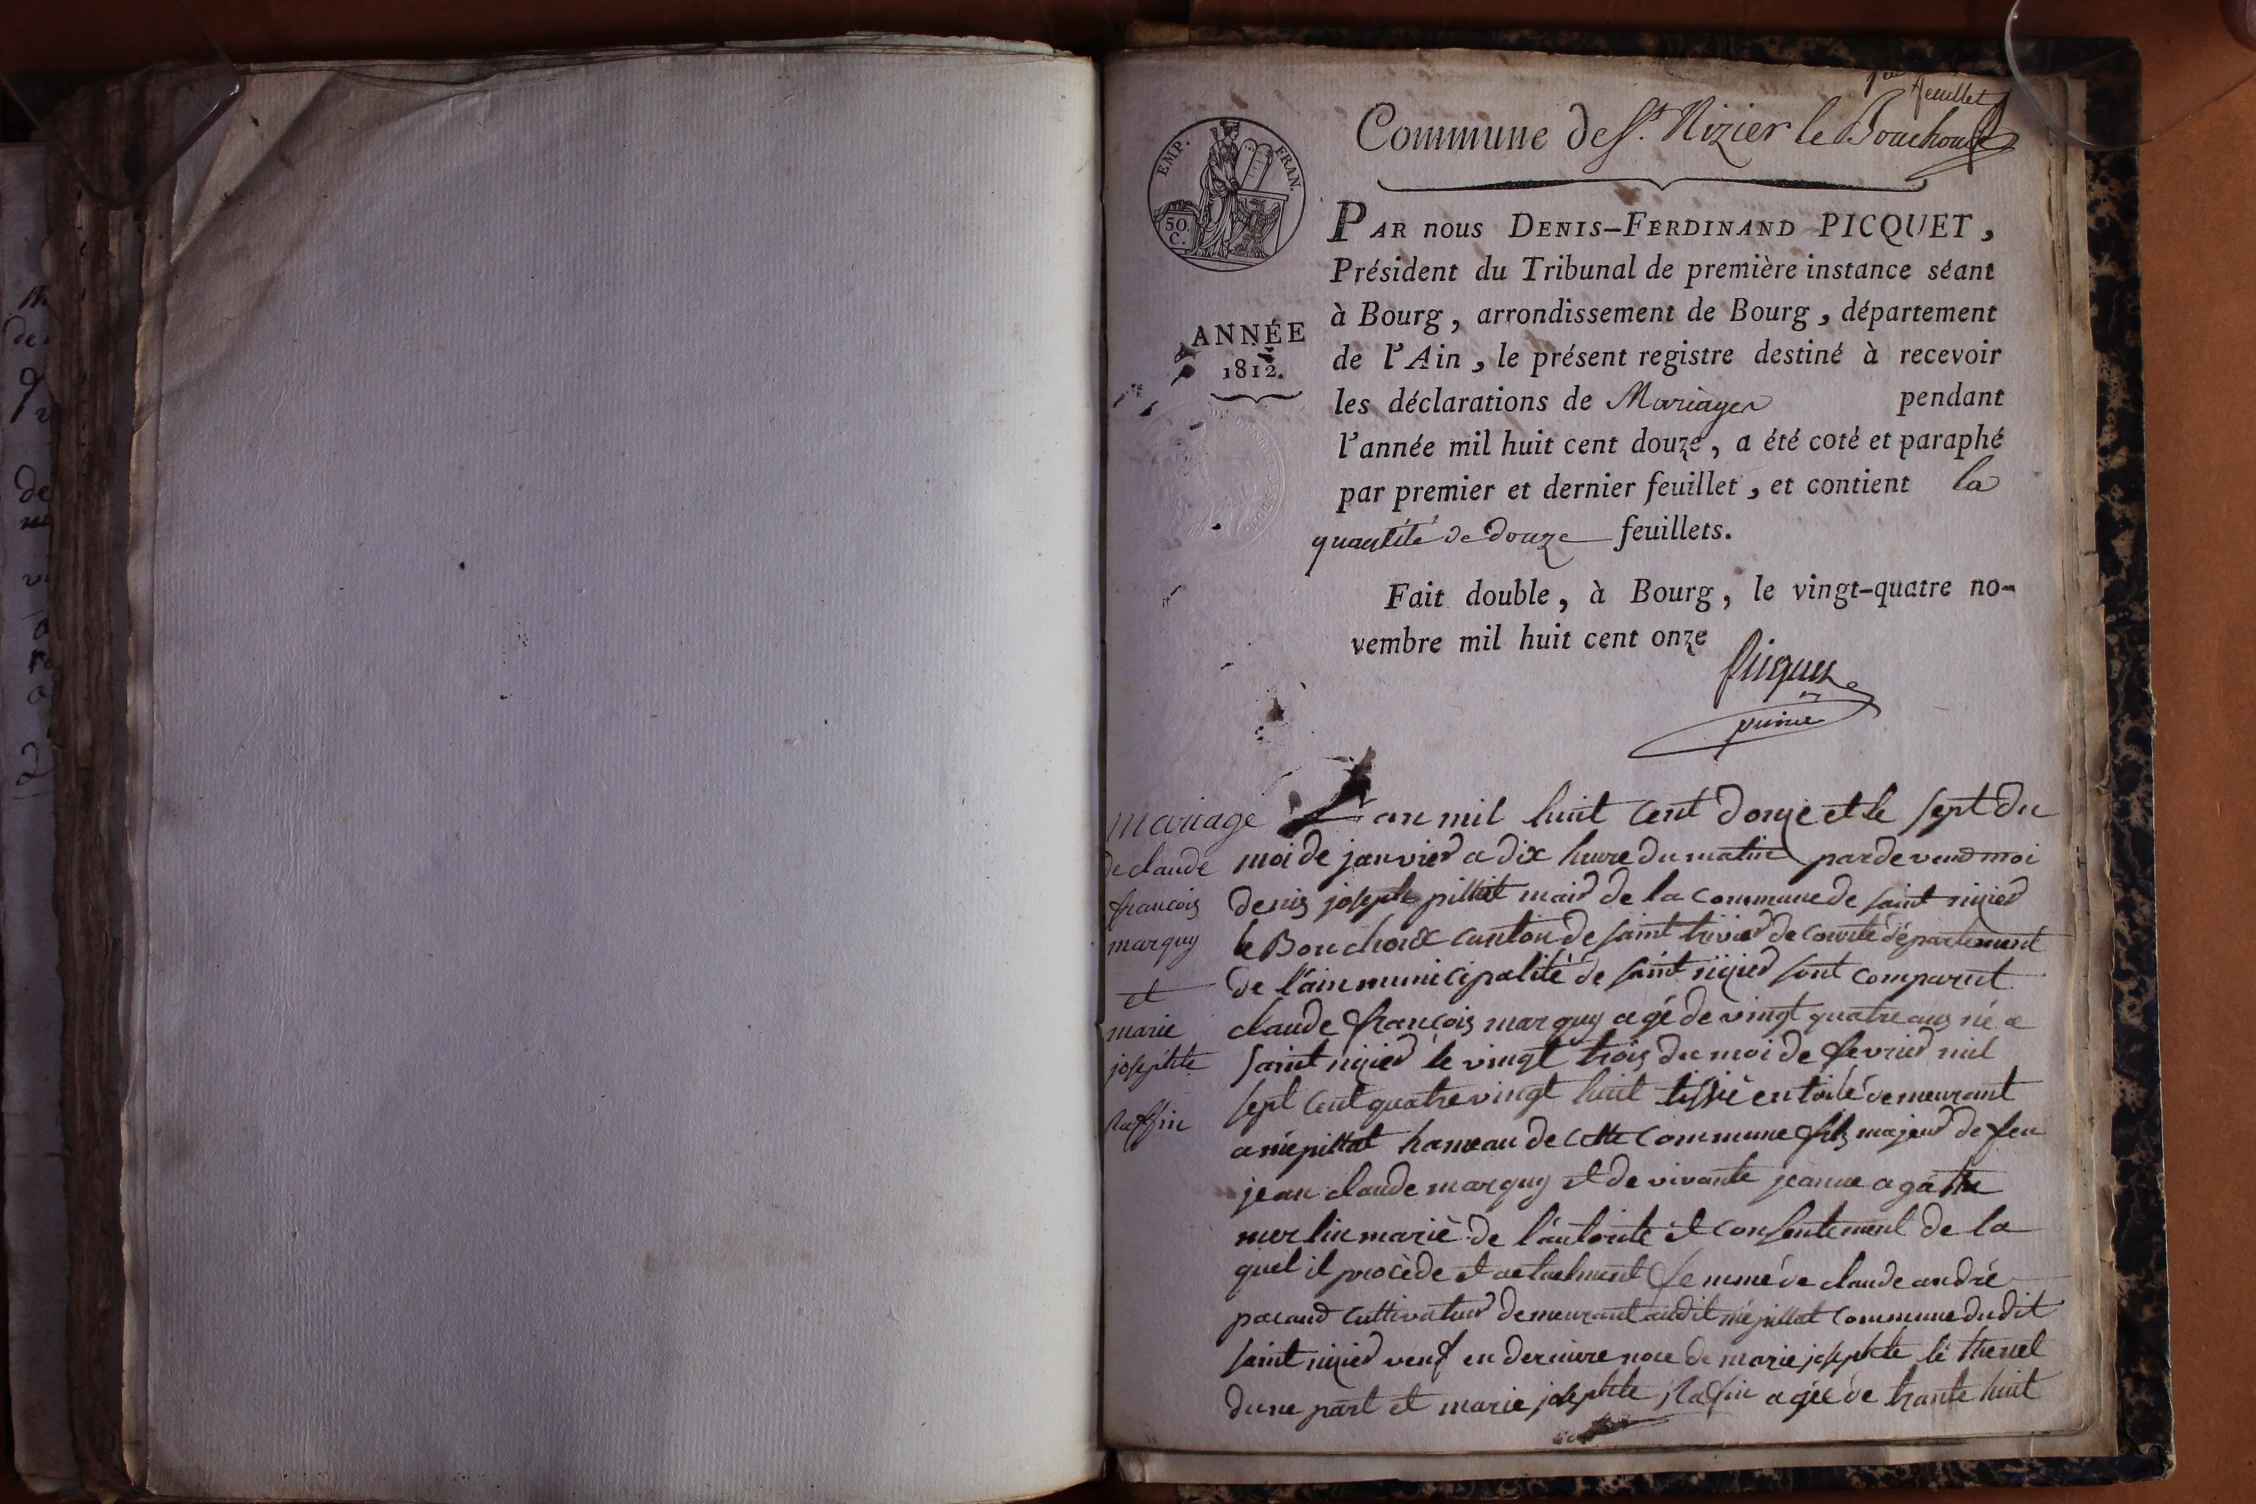 feuillet
Commune de St. Nizier le Bouchoux
EMP. FRAN.
50 C.
PAR nous DENIS-FERDINAND PICQUET,
Président du Tribunal de première instance séant
à Bourg, arrondissement de Bourg, département
ANNÉE
1812.
de l'Ain, le présent registre destiné à recevoir
les déclarations de Mariages pendant
l'année mil huit cent douze, a été coté et paraphé
par premier et dernier feuillet, et contient la
quantité de douze feuillets.
Fait double, à Bourg, le vingt-quatre no-
vembre mil huit cent onze
Picquet
mariage
de claude
francois
marguy
et
marie
josephte
Ruffin
L an mil huit cent douze et le sept du
moi de janvier a dix heure du matin pardevend moi
denis joseph pillat mair de la commune de saint nizier
le Bouchoux canton de saint trivier de courte département
de l'ain municipalité de saint nizier sont comparut
claude francois marguy agé de vingt quatre ans né a
saint nizier le vingt trois du moi de fevrier mil
sept cent quatre vingt huit tissié en toile demeurant
a mépillat hameau de cette commune fils majeur de feu
jean claude marguy et de vivante jeanne agathe
merlin marié de l'autorité et consentement de la
quel il procède et actuelment femme de claude andré
pacaud cultivateur demeurant audit mépillat commune dudit
saint nizier veuf en derniere noce de marie josephte thevel
dune part et marie josephte Rafin agée de trante huit